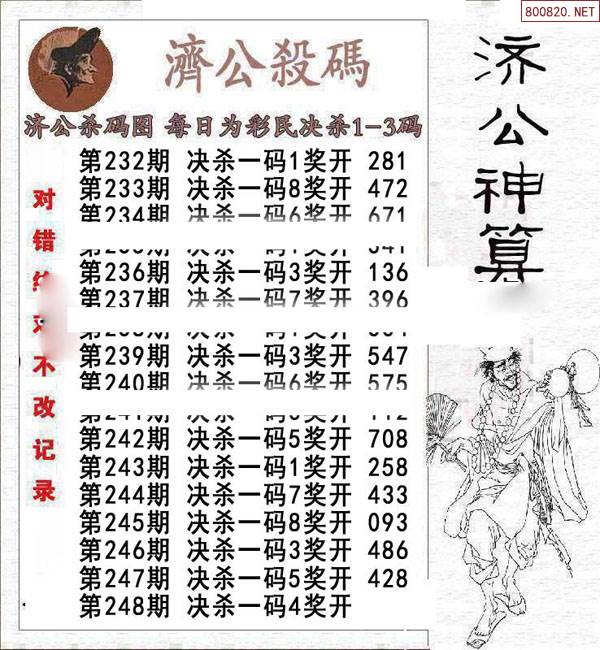 800820.NET
濟公殺碼
济公杀码图 每日为彩民决杀1-3码
第232期 决杀一码1奖开 281
第233期 决杀一码8奖开 472
第234期 决杀一码6奖开 671
第236期 决杀一码3奖开 136
第237期 决杀一码7奖开 396
第239期 决杀一码3奖开 547
第240期 决杀一码6奖开 575
第242期 决杀一码5奖开 708
第243期 决杀一码1奖开 258
第244期 决杀一码7奖开 433
第245期 决杀一码8奖开 093
第246期 决杀一码3奖开 486
第247期 决杀一码5奖开 428
第248期 决杀一码4奖开
对错
不改记录
济公神算